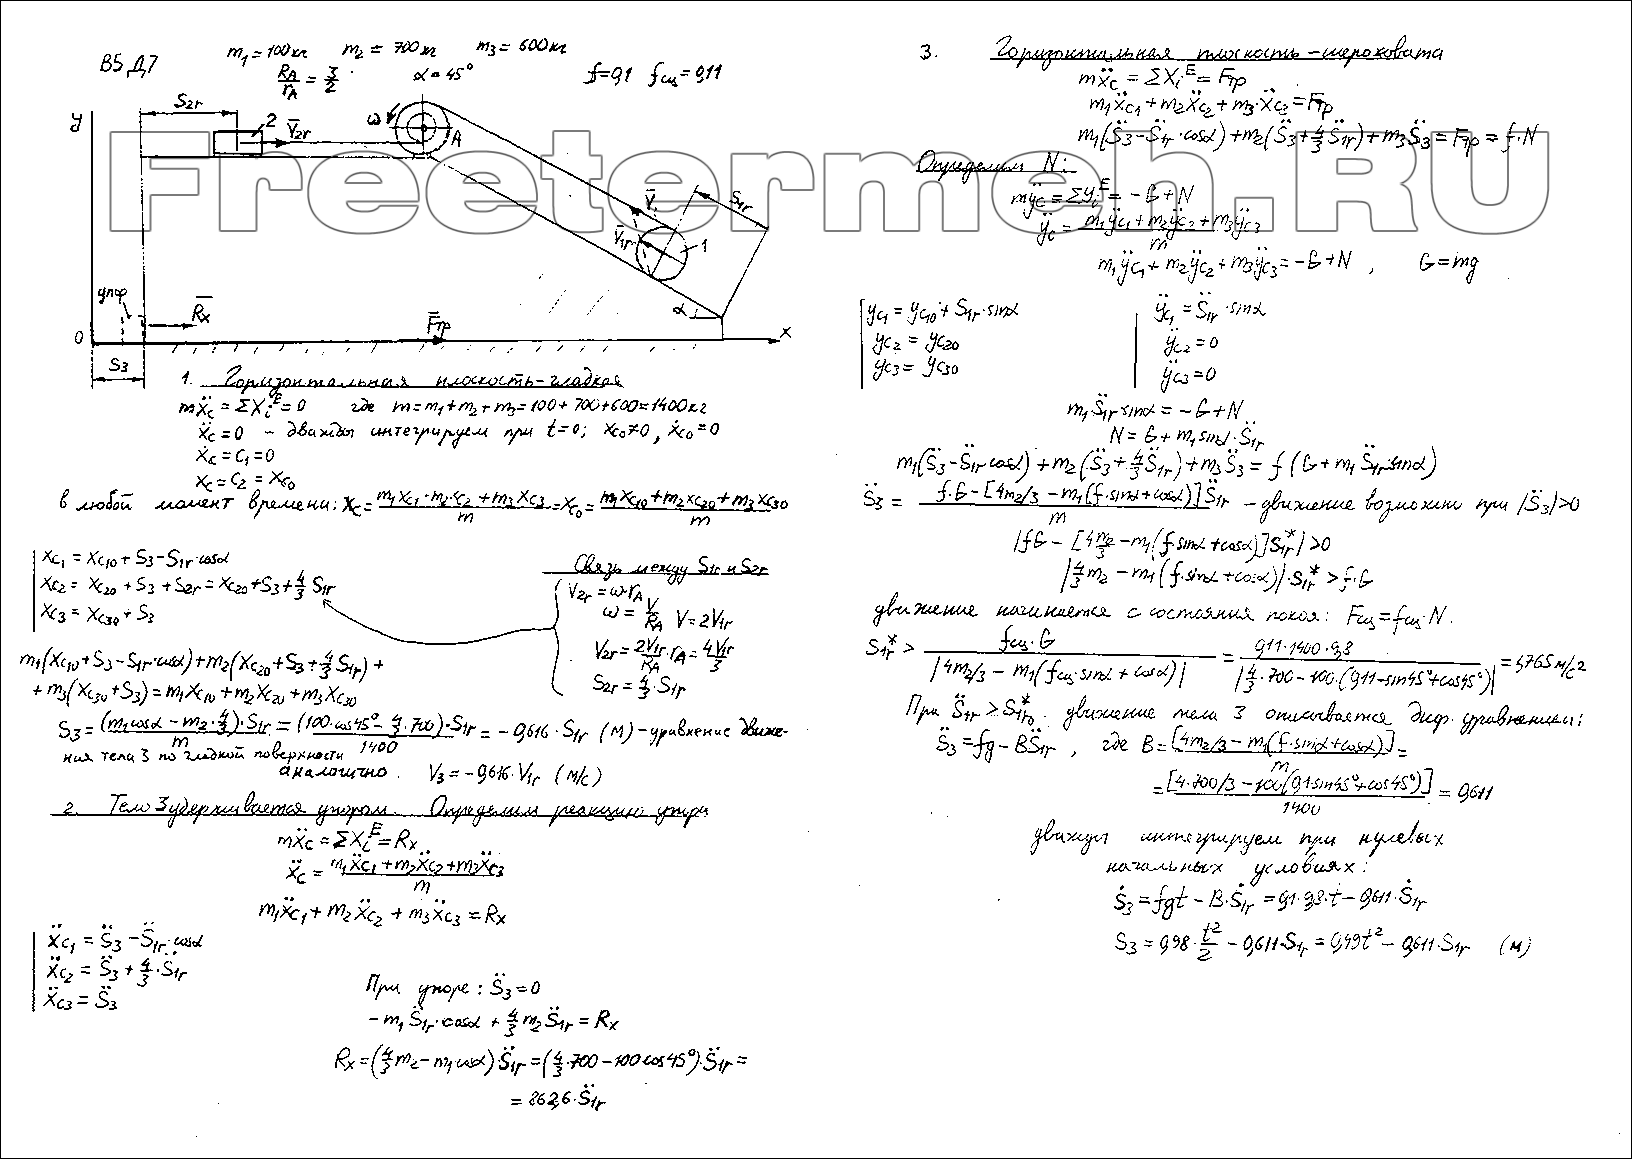 В5 Д7
m₁=100кг m₂=700кг m₃=600кг
R_A/r_A = 3/2 α=45° f=0,1 fсц=0,11
Freetermeh.RU
y
S₂r
2
V̄₂r
ω
A
V̄
V̄₁r
S₁r
1
упор
R̄x
F̄тр
α
0
x
S₃
1. Горизонтальная плоскость-гладкая
mẍc = ΣXiᴱ = 0 где m=m₁+m₂+m₃=100+700+600=1400кг
ẍc=0 – дважды интегрируем при t=0; xc₀≠0, ẋc₀=0
ẋc = C₁ = 0
xc = C₂ = xc₀
в любой момент времени: xc = (m₁xc₁·m₂·c₂+m₃xc₃)/m = xc₀ = (m₁xc₁₀+m₂xc₂₀+m₃xc₃₀)/m
xc₁ = xc₁₀+S₃-S₁r·cosα
xc₂ = xc₂₀+S₃+S₂r = xc₂₀+S₃+4/3 S₁r
xc₃ = xc₃₀+S₃
Связь между S₁r и S₂r
V₂r = ω·r_A
ω = V/R_A V=2V₁r
V₂r = 2V₁r/R_A·r_A = 4V₁r/3
S₂r = 4/3·S₁r
m₁(xc₁₀+S₃-S₁r·cosα)+m₂(xc₂₀+S₃+4/3 S₁r)+
+m₃(xc₃₀+S₃)=m₁xc₁₀+m₂xc₂₀+m₃xc₃₀
S₃ = (m₁cosα-m₂·4/3)·S₁r/m = (100·cos45°-4/3·700)·S₁r/1400 = -0,616·S₁r (м)-уравнение движе-
ния тела 3 по гладкой поверхности
аналогично. V₃=-0,616·V₁r (м/с)
2. Тело 3 удерживается упором. Определим реакцию упора
mẍc = ΣXiᴱ = Rx
ẍc = (m₁ẍc₁+m₂ẍc₂+m₃ẍc₃)/m
m₁ẍc₁+m₂ẍc₂+m₃ẍc₃=Rx
ẍc₁ = S̈₃-S̈₁r·cosα
ẍc₂ = S̈₃+4/3·S̈₁r
ẍc₃ = S̈₃
При упоре: S̈₃=0
-m₁S̈₁r·cosα+4/3 m₂S̈₁r=Rx
Rx=(4/3 m₂-m₁cosα)·S̈₁r=(4/3·700-100cos45°)·S̈₁r=
=862,6·S̈₁r
3. Горизонтальная плоскость-шероховата
mẍc = ΣXiᴱ = Fтр
m₁ẍc₁+m₂ẍc₂+m₃·ẍc₃=Fтр
m₁(S̈₃-S̈₁r·cosα)+m₂(S̈₃+4/3 S̈₁r)+m₃S̈₃=Fтр=f·N
Определим N:
mÿc = ΣYiᴱ = -G+N
ÿc = (m₁ÿc₁+m₂ÿc₂+m₃ÿc₃)/m
m₁ÿc₁+m₂ÿc₂+m₃ÿc₃=-G+N, G=mg
yc₁=yc₁₀+S₁r·sinα ÿc₁=S̈₁r·sinα
yc₂=yc₂₀ ÿc₂=0
yc₃=yc₃₀ ÿc₃=0
m₁S̈₁r sinα=-G+N
N=G+m₁sinα·S̈₁r
m₁(S̈₃-S̈₁r cosα)+m₂(S̈₃+4/3 S̈₁r)+m₃S̈₃=f(G+m₁S̈₁r·sinα)
S̈₃ = (f·G-[4m₂/3-m₁(f·sinα+cosα)]S̈₁r)/m – движение возможно при |S̈₃|>0
|fG-[4m₂/3-m₁(f sinα+cosα)]S̈₁r*|>0
|4/3 m₂-m₁(f·sinα+cosα)|·S̈₁r*>f·G
движение начинается с состояния покоя: Fсц=fсц·N.
S̈₁r* > fсц·G/|4m₂/3-m₁(fсц·sinα+cosα)| = 0,11·1400·9,8/|4/3·700-100·(0,11·sin45°+cos45°)| = 1,765 м/с²
При S̈₁r≥S̈₁r₀* движение тела 3 описывается диф. уравнением:
S̈₃=fg-BS̈₁r, где B=[4m₂/3-m₁(f·sinα+cosα)]/m=
=[4·700/3-100(0,1sin45°+cos45°)]/1400=0,611
дважды интегрируем при нулевых
начальных условиях:
Ṡ₃=fgt-B·Ṡ₁r=0,1·9,8·t-0,611·Ṡ₁r
S₃=0,98·t²/2-0,611·S₁r=0,49t²-0,611·S₁r (м)